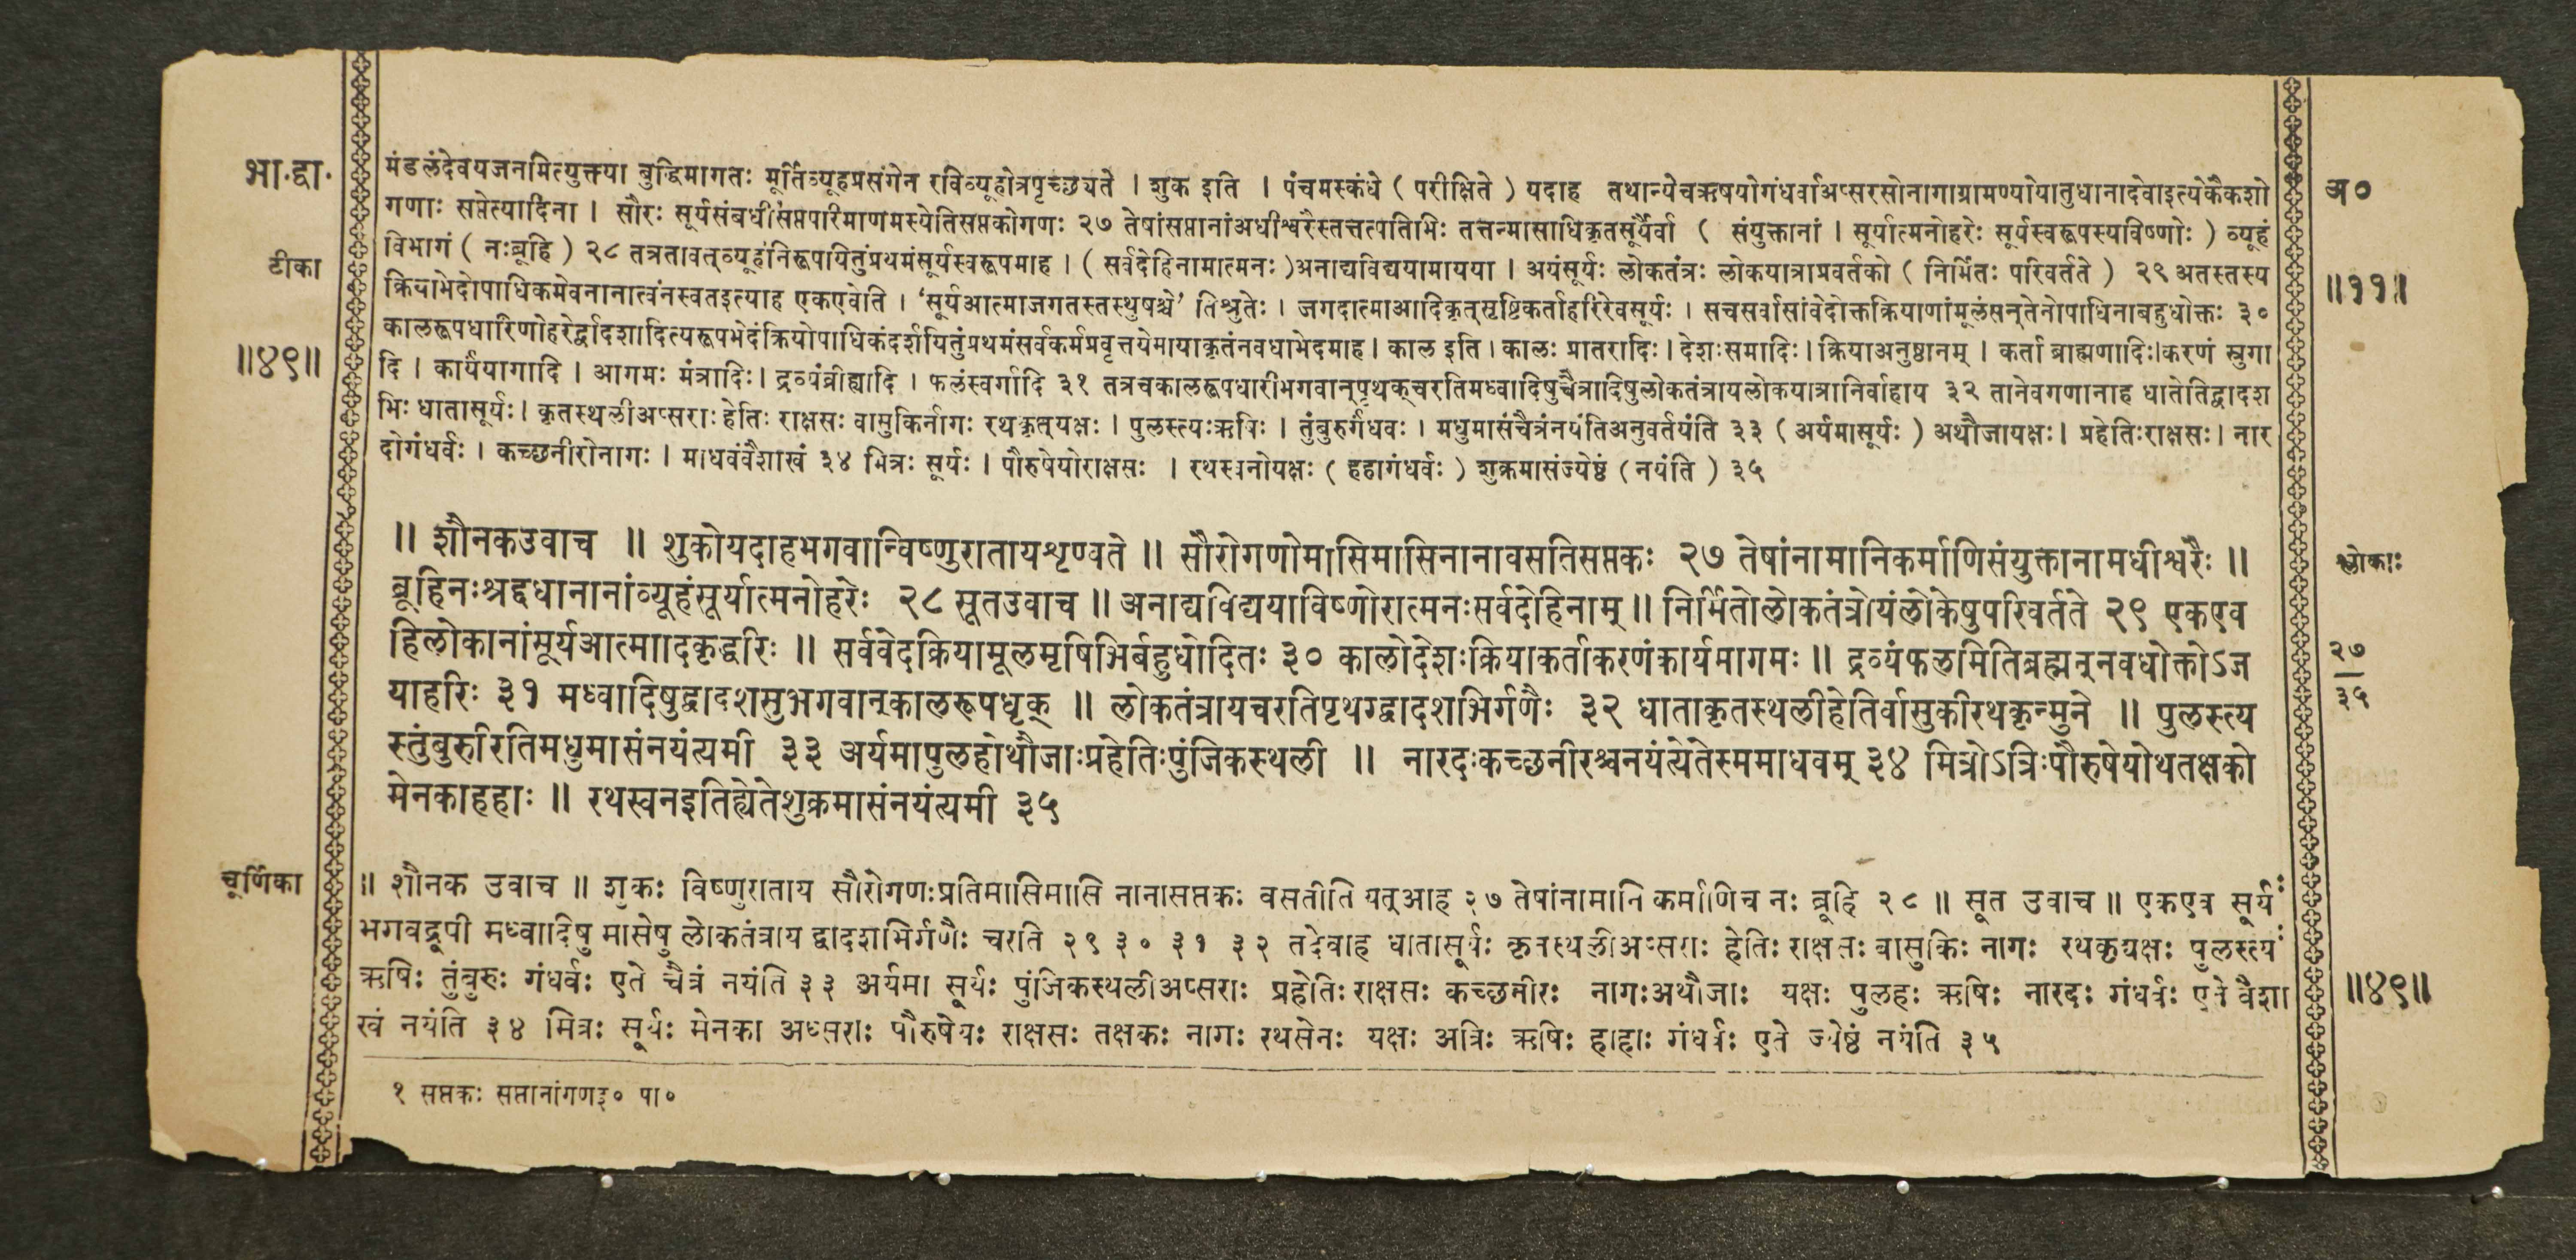 भा.द्वा.
मंडलंदेवयजनमित्युक्तया बुद्धिमागतः मूर्तिव्यूहप्रसंगेन रविव्यूहोत्रपृच्छ्यते । शुक इति । पंचमस्कंधे ( परीक्षिते ) यदाह तथान्येचऋषयोगंधर्वाअप्सरसोनागाग्रामण्योयातुधानादेवाइत्येकैकशो
अ०
गणाः सप्तेत्यादिना । सौरः सूर्यसंबधीसप्तपरिमाणमस्येतिसप्तकोगणः २७ तेषांसप्तानांअधीश्वरैस्तत्तत्पतिभिः तत्तन्मासाधिकृतसूर्यैर्वा ( संयुक्तानां । सूर्यात्मनोहरेः सूर्यस्वरूपस्यविष्णोः ) व्यूहं
टीका
विभागं ( नःब्रूहि ) २८ तत्रतावत्व्यूहंनिरूपयितुंप्रथमंसूर्यस्वरूपमाह । ( सर्वदेहिनामात्मनः )अनाद्यविद्ययामायया । अयंसूर्यः लोकतंत्रः लोकयात्राप्रवर्तको ( निर्मितः परिवर्तते ) २९ अतस्तस्य
॥११॥
क्रियाभेदोपाधिकमेवनानात्वंनस्वतइत्याह एकएवेति । 'सूर्यआत्माजगतस्तस्थुषश्चे' तिश्रुतेः । जगदात्माआदिकृत्सृष्टिकर्ताहरिरेवसूर्यः । सचसर्वासांवेदोक्तक्रियाणांमूलंसन्तेनोपाधिनाबहुधोक्तः ३०
॥४९॥
कालरूपधारिणोहरेर्द्वादशादित्यरूपभेदंक्रियोपाधिकंदर्शयितुंप्रथमंसर्वकर्मप्रवृत्तयेमायाकृतंनवधाभेदमाह । काल इति । कालः प्रातरादिः । देशःसमादिः । क्रियाअनुष्ठानम् । कर्ता ब्राह्मणादिः।करणं स्रुगा
दि । कार्ययागादि । आगमः मंत्रादिः । द्रव्यंव्रीह्यादि । फलंस्वर्गादि ३१ तत्रचकालरूपधारीभगवान्पृथक्चरतिमध्वादिषुचैत्रादिषुलोकतंत्रायलोकयात्रानिर्वाहाय ३२ तानेवगणानाह धातेतिद्वादश
भिः धातासूर्यः । कृतस्थलीअप्सराः हेतिः राक्षसः वासुकिर्नागः रथकृत्यक्षः । पुलस्त्यःऋषिः । तुंबुरुर्गंधवः । मधुमासंचैत्रंनयंतिअनुवर्तयंति ३३ ( अर्यमासूर्यः ) अथौजायक्षः । प्रहेतिःराक्षसः । नार
दोगंधर्वः । कच्छनीरोनागः । माधवंवैशाखं ३४ मित्रः सूर्यः । पौरुषेयोराक्षसः । रथस्वनोयक्षः ( हहागंधर्वः ) शुक्रमासंज्येष्ठं ( नयंति ) ३५
॥ शौनकउवाच ॥ शुकोयदाहभगवान्विष्णुरातायशृण्वते ॥ सौरोगणोमासिमासिनानावसतिसप्तकः २७ तेषांनामानिकर्माणिसंयुक्तानामधीश्वरैः ॥
श्लोकाः
ब्रूहिनःश्रद्दधानानांव्यूहंसूर्यात्मनोहरेः २८ सूतउवाच ॥ अनाद्यविद्ययाविष्णोरात्मनःसर्वदेहिनाम् ॥ निर्मितोलोकतंत्रोयंलोकेषुपरिवर्तते २९ एकएव
हिलोकानांमूर्यआत्माादकृद्धरिः ॥ सर्ववेदक्रियामूलमृषिभिर्बहुधोदितः ३० कालोदेशःक्रियाकर्ताकरणंकार्यमागमः ॥ द्रव्यंफलमितिब्रह्मन्नवधोक्तोऽज
२७
३५
याहरिः ३१ मध्वादिषुद्वादशसुभगवान्कालरूपधृक् ॥ लोकतंत्रायचरतिपृथग्द्वादशभिर्गणैः ३२ धाताकृतस्थलीहेतिर्वासुकीरथकृन्मुने ॥ पुलस्त्य
स्तुंबुरुरितिमधुमासंनयंत्यमी ३३ अर्यमापुलहोथौजाःप्रहेतिःपुंजिकस्थली ॥ नारदःकच्छनीरश्चनयंत्येतेस्ममाधवम् ३४ मित्रोऽत्रिःपौरुषेयोथतक्षको
मेनकाहहाः ॥ रथस्वनइतिह्येतेशुक्रमासंनयंत्यमी ३५
चूर्णिका
॥ शौनक उवाच ॥ शुकः विष्णुराताय सौरोगणःप्रतिमासिमासि नानासप्तकः वसतीति यत्आह २७ तेषांनामानि कर्माणिच नः ब्रूहि २८ ॥ सूत उवाच ॥ एकएव सूर्यः
भगवद्रूपी मध्वादिषु मासेषु लोकतंत्राय द्वादशभिर्गणैः चरति २९ ३० ३१ ३२ तदेवाह धातासूर्यः कृतस्थलीअप्सराः हेतिः राक्षसः वासुकिः नागः रथकृयक्षः पुलस्त्यः
ऋषिः तुंबुरुः गंधर्वः एते चैत्रं नयंति ३३ अर्यमा सूर्यः पुंजिकस्थलीअप्सराः प्रहेतिः राक्षसः कच्छनीरः नागःअथौजाः यक्षः पुलहः ऋषिः नारदः गंधर्वः एते वैशा
॥४९॥
खं नयंति ३४ मित्रः सूर्यः मेनका अप्सराः पौरुषेयः राक्षसः तक्षकः नागः रथसेनः यक्षः अत्रिः ऋषिः हाहाः गंधर्वः एते ज्येष्ठं नयंति ३५
१ सप्तकः सप्तानांगणइ० पा०